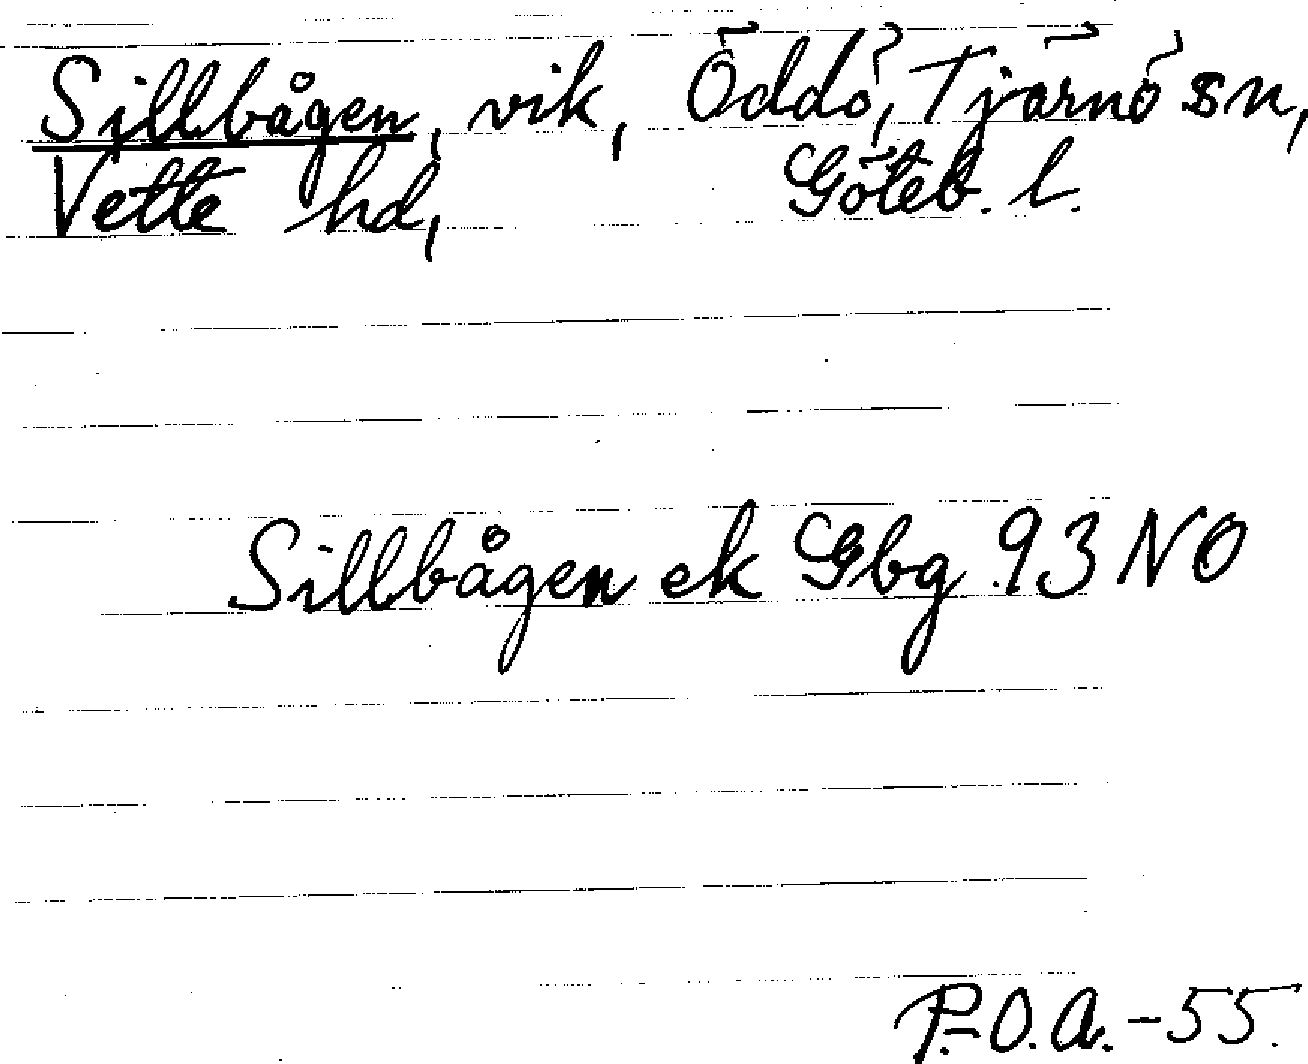 Sillbågen, vik, Öddö, Tjärnö sn,
Vette hd, Göteb. l.
Sillbågen ek Gbg 93 NO
P.-O.A. -55.